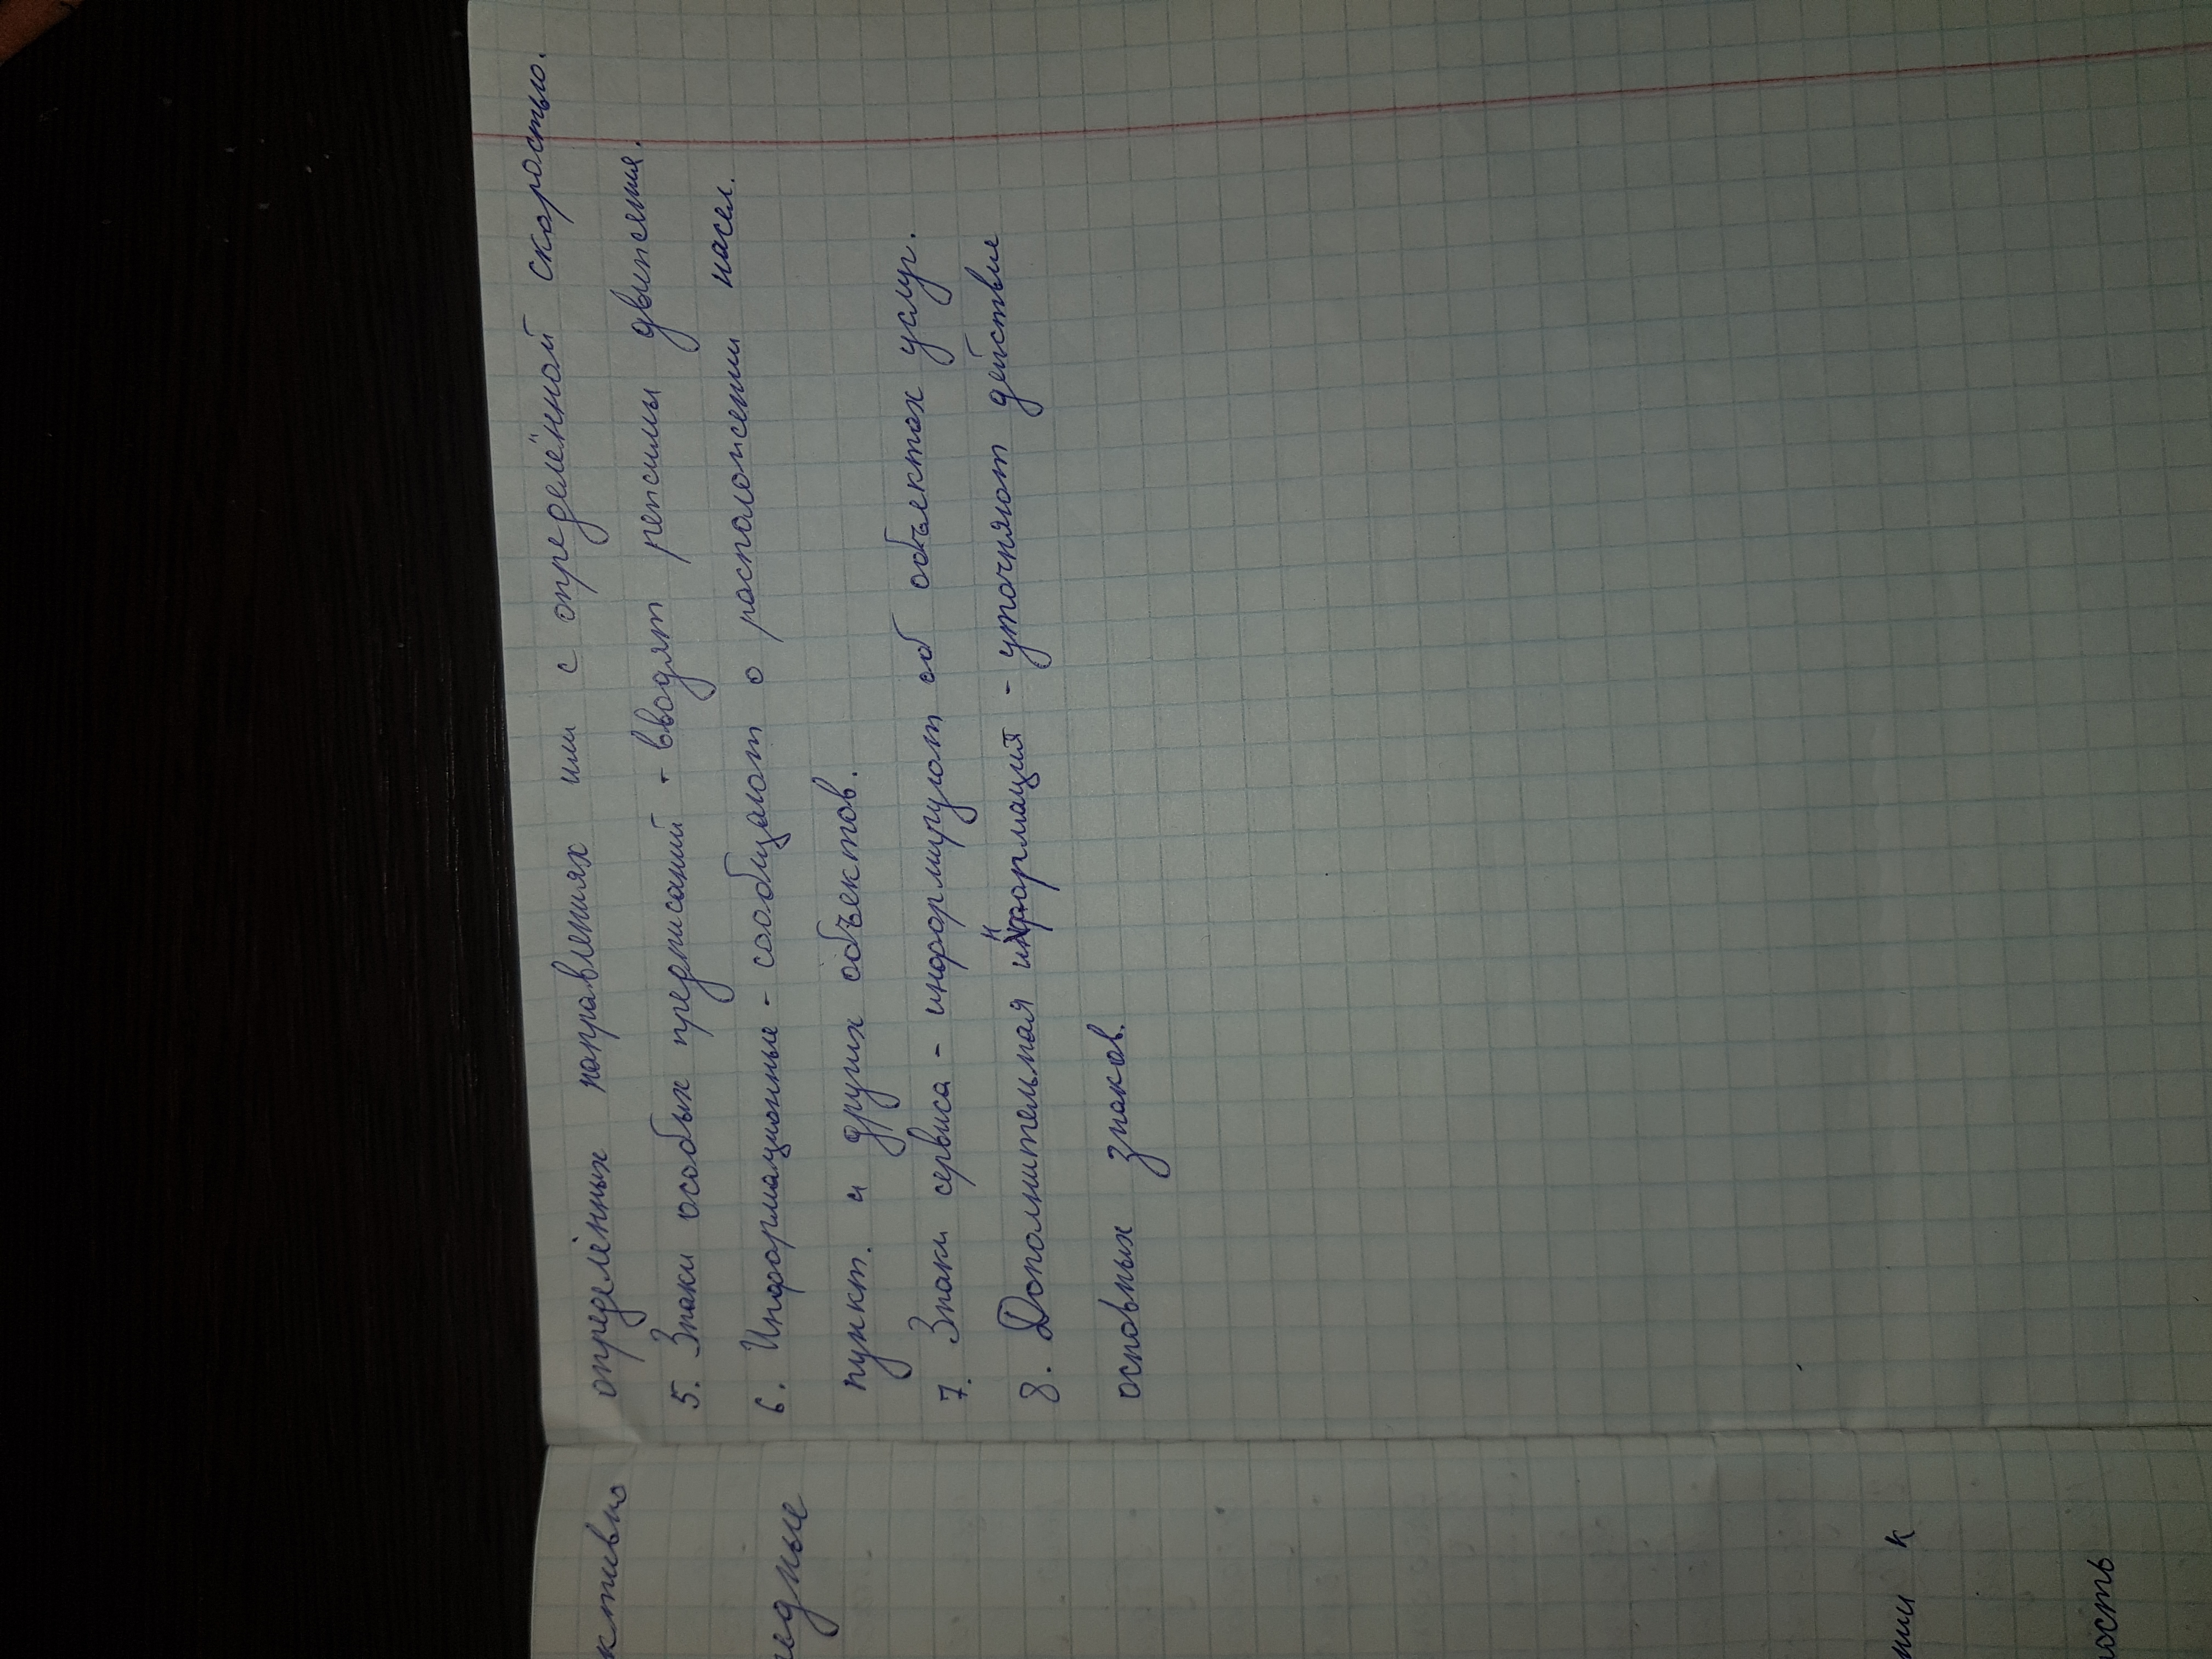 определённых направлениях или с определённой скоростью.
5. Знаки особых предписаний - вводят режимы движения.
6. Информационные - сообщают о расположении насел.
пункт. и других объектов.
7. Знаки сервиса - информируют об объектах услуг.
8. Дополнительная информация - уточняют действие
основных знаков.
ктивно
едные
нии к
ность